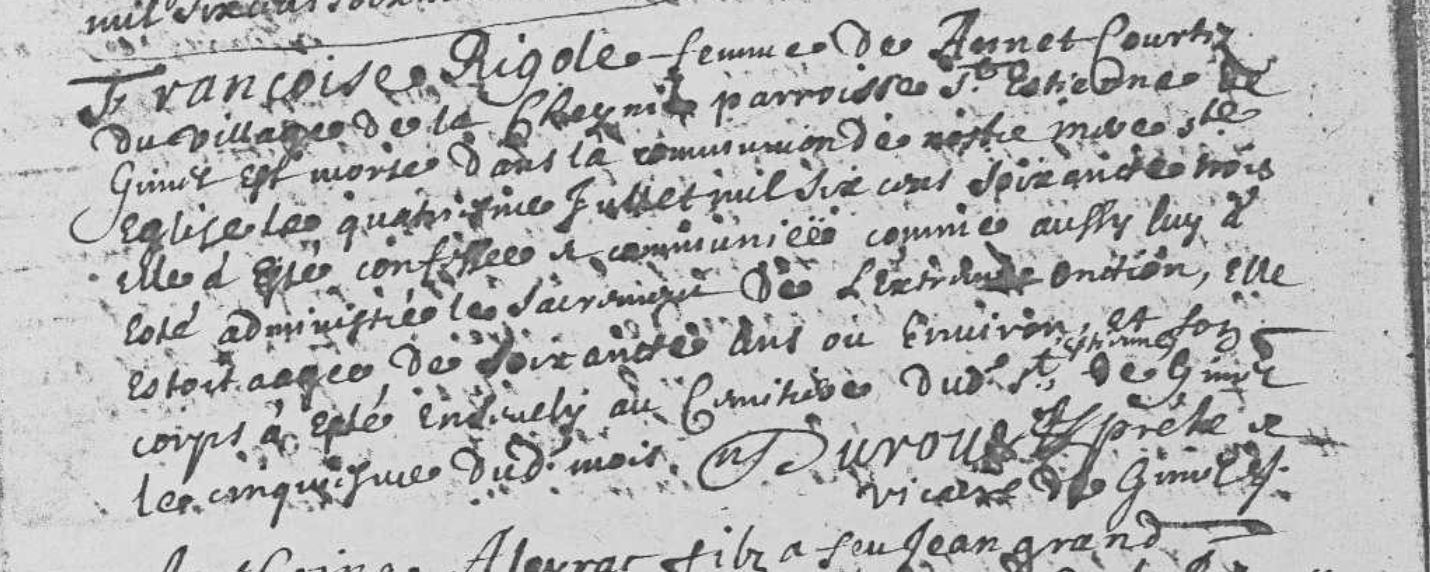 mil six cens soix
Françoise Rigole femme de Annet Courtiz
du village de la Cheynie parroisse St Estienne de
Gimel est morte dans la communion de nostre mere ste
Eglise le quatriesme Juillet mil six cens soixante trois
elle à esté confessée et communiéë comme aussy luy à
esté administrée le sacrement de L'extreme onction, elle
estoit aagee de soixante ans ou environ, et son
corps à esté ensevely au Cemitiere dud. St. estienne de Gimel
le cinquiesme dud. mois. Duroux prêtre et
vicaire de Gimel
Aleyrac filz a feu Jean grand